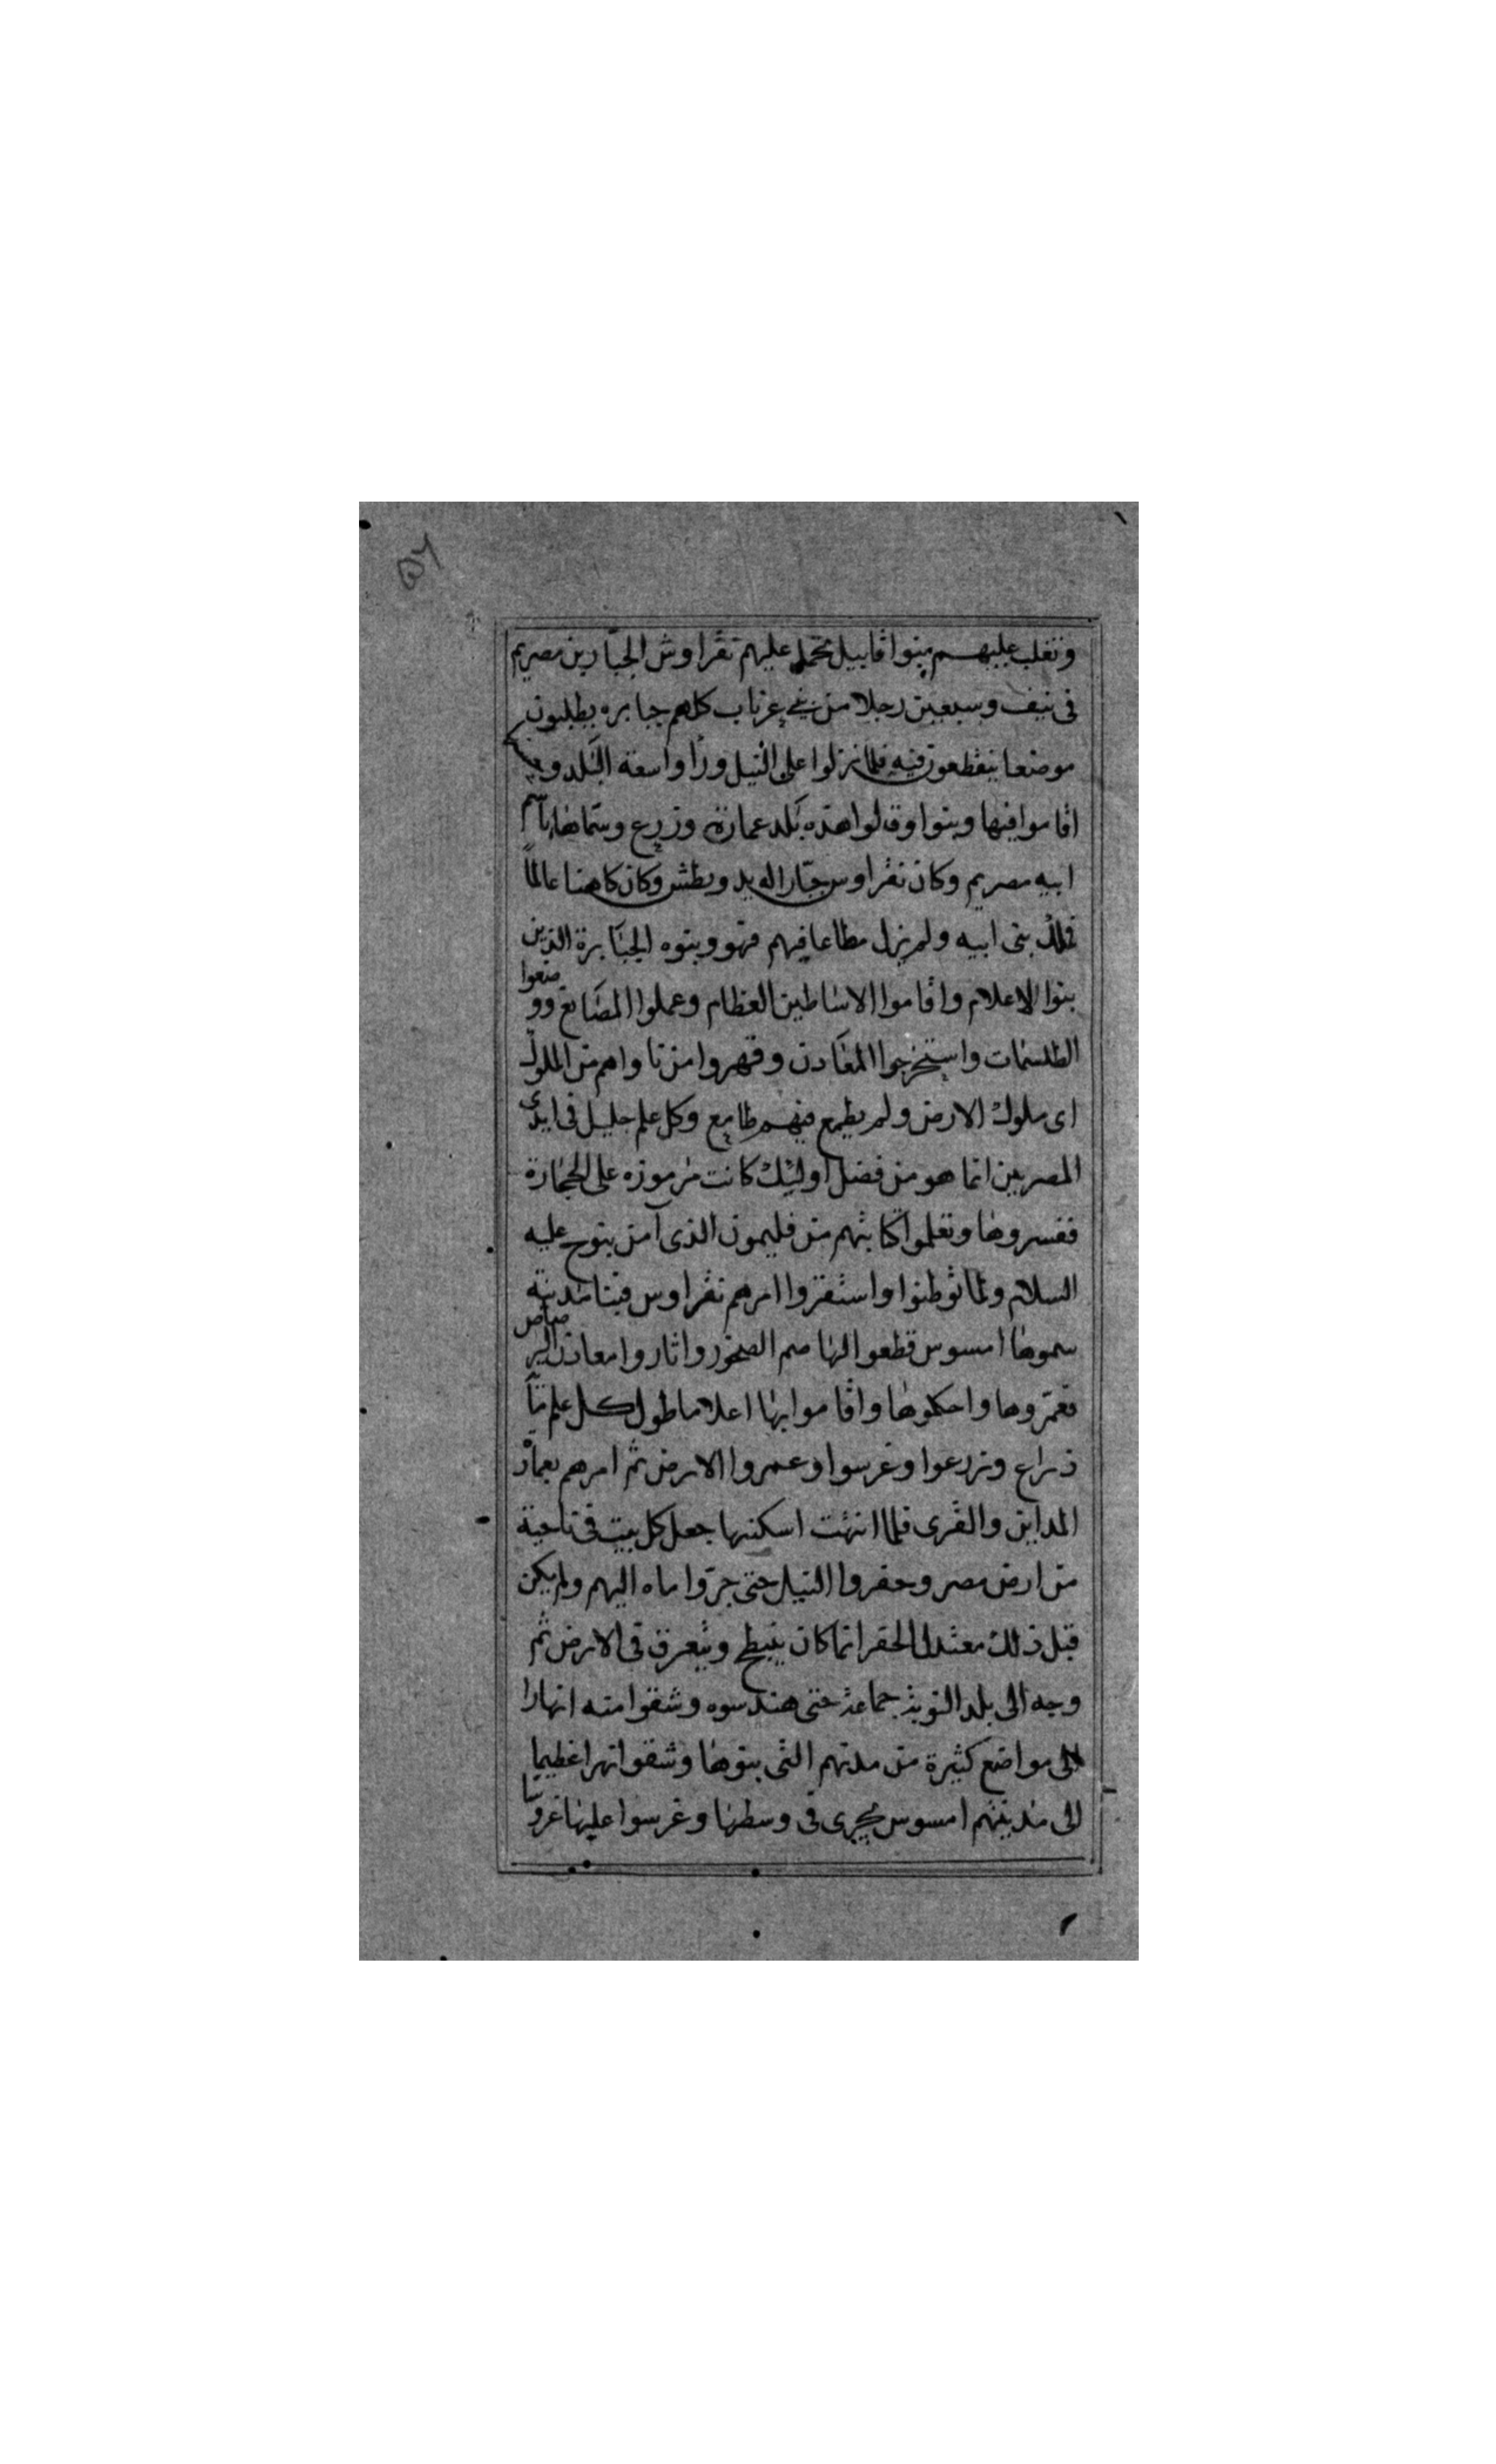 وتغلب عليهم بنوا قابيل تحمل عليهم نقراوش الجبّار بن مصريم
فى نيف وسبعين رجلا من بنى عرباب كلهم جبابره يطلبون
موضعا ينقطعون فيه فلما نزلوا على النيل وراوا سعة البلد و
اقاموا فيها وبنوا وقالوا هذه بلد عمارة وزرع وسماها باسم
ابيه مصريم وكان نقراوس جبّارا له يد وبطش وكان كاهنا عالماً
فملك بنى ابيه ولم يزل مطاعا فيهم فهو وبنوه الجبابرة الذين
بنوا الاعلام واقاموا الاساطين العظام وعملوا المصانع ووضعوا
الطلسمات واستخرجوا المعادن وقهروا من ناواهم من الملوك
اى ملوك الارض ولم يطمع فيهم طامع وكل علم جليل فى ايدى
المصريين انما هو من فضل اوليك كانت مرموزه على الحجارة
ففسروها وتعلموا كتابتهم من فليمون الذى آمن بنوح عليه
السلام ولما توطنوا واستقروا امرهم نقراوس فبنا مدينة
سموها امسوس قطعوا لها صم الصخور واثاروا معادن الرصاص
فعمّروها واحكموها واقاموا بها اعلاما طول كل علم مآ
ذراع وزرعوا وغرسوا وعمروا الارض ثم امرهم بعمارة
المداين والقرى فلما انتهت اسكنها جعل كل بيت فى ناحية
من ارض مصر وحفروا النيل حتى جرّوا ماه اليهم ولم يكن
قبل ذلك معتدل الحفر انما كان ينبطح ويتعرق فى الارض ثم
وجه الى بلد النوبة جماعة حتى هندسوه وشقوا منه انهارا
الى مواضع كثيرة من مدنهم التى بنوها وشقوا نهرا عظيما
الى مدينتهم امسوس يجرى فى وسطها وغرسوا عليها غروسا